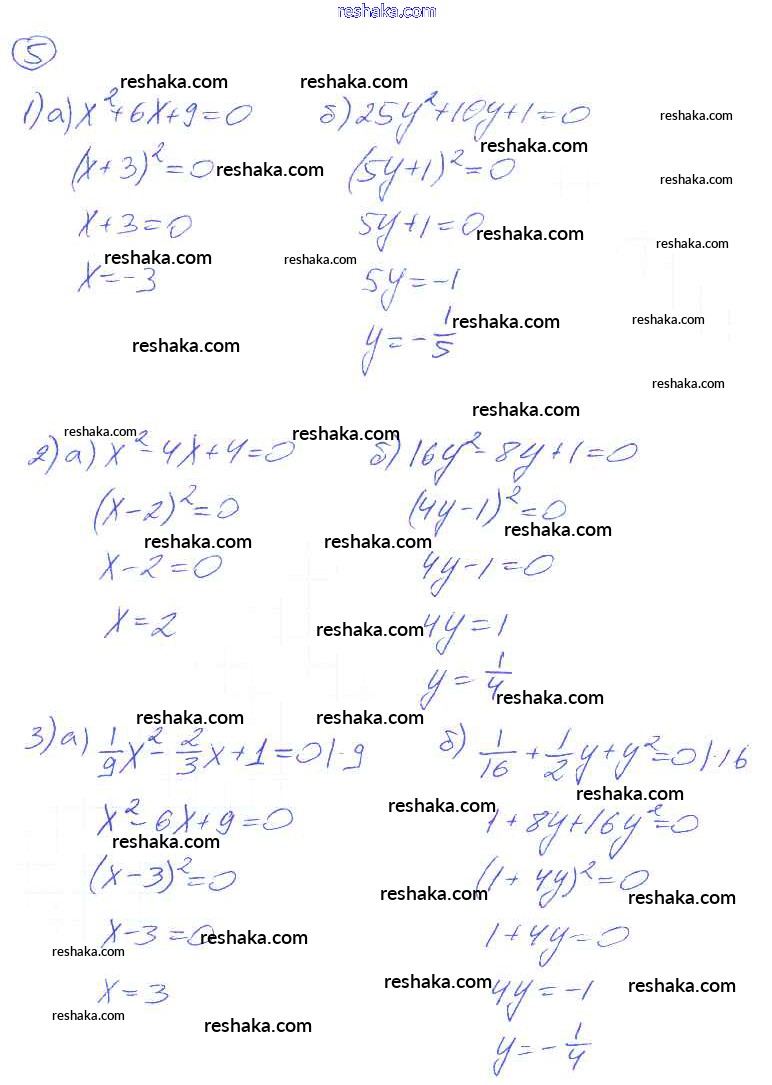 reshaka.com
5
reshaka.com reshaka.com
1) а) x²+6x+9=0 б) 25y²+10y+1=0 reshaka.com
reshaka.com
(x+3)²=0 reshaka.com (5y+1)²=0 reshaka.com
x+3=0 5y+1=0 reshaka.com reshaka.com
reshaka.com reshaka.com
x=-3 5y=-1
reshaka.com reshaka.com
reshaka.com y=-1/5
reshaka.com
reshaka.com
reshaka.com reshaka.com
2) а) x²-4x+4=0 б) 16y²-8y+1=0
(x-2)²=0 (4y-1)²=0
reshaka.com reshaka.com reshaka.com
x-2=0 4y-1=0
x=2 reshaka.com 4y=1
y=1/4
reshaka.com
reshaka.com reshaka.com
3) а) 1/9x²-2/3x+1=0|·9 б) 1/16+1/2y+y²=0|·16
reshaka.com
reshaka.com
x²-6x+9=0 1+8y+16y²=0
reshaka.com
(x-3)²=0 (1+4y)²=0
reshaka.com reshaka.com
x-3=0 reshaka.com 1+4y=0
reshaka.com
x=3 reshaka.com 4y=-1 reshaka.com
reshaka.com reshaka.com
y=-1/4